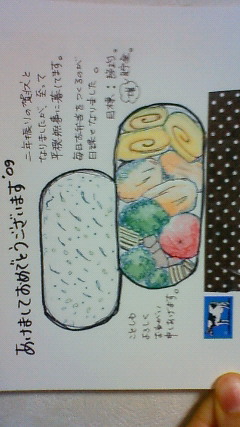 あけましておめでとうございます'09
二年振りの賀状と
なりましたが、至って
平穏無事に暮してます。
毎日お弁当をつくるのが
日課となりました。
目標：節約。
貯金。
ことしも
よろしく
おねがい
申しあげます。